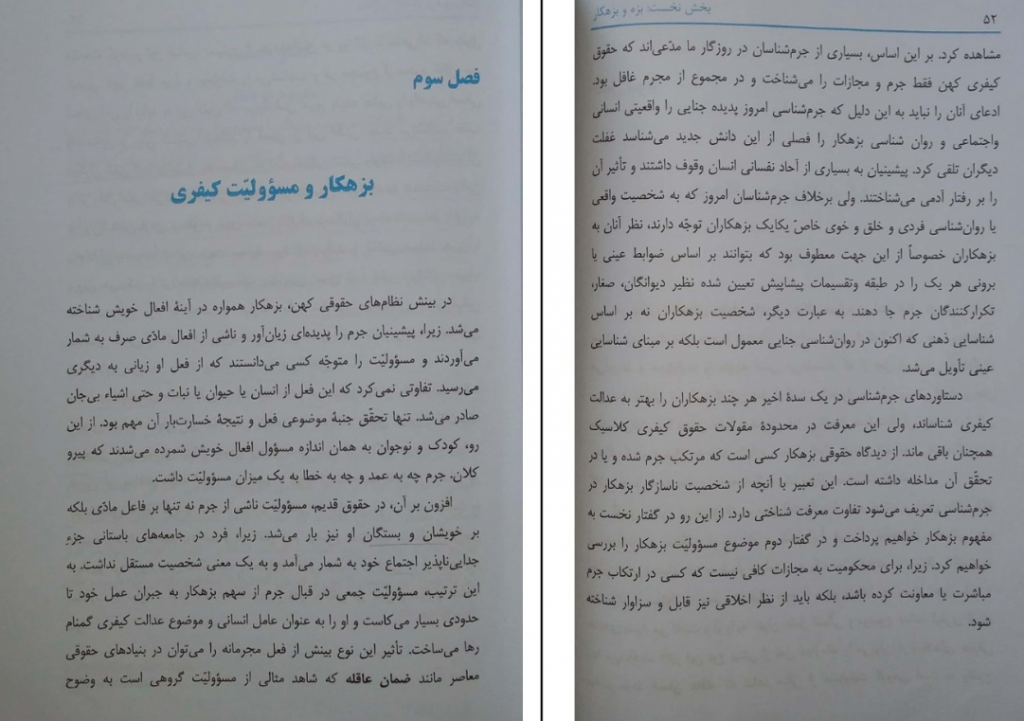 فصل سوم
بزهکار و مسؤولیّت کیفری
در بینش نظام‌های حقوقی کهن، بزهکار همواره در آینهٔ افعال خویش شناخته
می‌شد. زیرا، پیشینیان جرم را پدیده‌ای زیان‌آور و ناشی از افعال مادّی صرف به شمار
می‌آوردند و مسؤولیّت را متوجّه کسی می‌دانستند که از فعل او زیانی به دیگری
می‌رسید. تفاوتی نمی‌کرد که این فعل از انسان یا حیوان یا نبات و حتی اشیاء بی‌جان
صادر می‌شد. تنها تحقّق جنبهٔ موضوعی فعل و نتیجهٔ خسارت‌بار آن مهم بود. از این
رو، کودک و نوجوان به همان اندازه مسؤول افعال خویش شمرده می‌شدند که پیرو
کلان، جرم چه به عمد و چه به خطا به یک میزان مسؤولیّت داشت.
افزون بر آن، در حقوق قدیم، مسؤولیّت ناشی از جرم نه تنها بر فاعل مادّی بلکه
بر خویشان و بستگان او نیز بار می‌شد. زیرا، فرد در جامعه‌های باستانی جزءِ
جدایی‌ناپذیر اجتماع خود به شمار می‌آمد و به یک معنی شخصیت مستقل نداشت. به
این ترتیب، مسؤولیّت جمعی در قبال جرم از سهم بزهکار به جبران عمل خود تا
حدودی بسیار می‌کاست و او را به عنوان عامل انسانی و موضوع عدالت کیفری گمنام
رها می‌ساخت. تأثیر این نوع بینش از فعل مجرمانه را می‌توان در بنیادهای حقوقی
معاصر مانند ضمان عاقله که شاهد مثالی از مسؤولیّت گروهی است به وضوح
۵۲ بخش نخست: بزه و بزهکار
مشاهده کرد. بر این اساس، بسیاری از جرم‌شناسان در روزگار ما مدّعی‌اند که حقوق
کیفری کهن فقط جرم و مجازات را می‌شناخت و در مجموع از مجرم غافل بود.
ادعای آنان را نباید به این دلیل که جرم‌شناسی امروز پدیده جنایی را واقعیتی انسانی
واجتماعی و روان شناسی بزهکار را فصلی از این دانش جدید می‌شناسد غفلت
دیگران تلقی کرد. پیشینیان به بسیاری از آحاد نفسانی انسان وقوف داشتند و تأثیر آن
را بر رفتار آدمی می‌شناختند. ولی برخلاف جرم‌شناسان امروز که به شخصیت واقعی
یا روان‌شناسی فردی و خلق و خوی خاصّ یکایک بزهکاران توجّه دارند، نظر آنان به
بزهکاران خصوصاً از این جهت معطوف بود که بتوانند بر اساس ضوابط عینی یا
برونی هر یک را در طبقه وتقسیمات پیشاپیش تعیین شده نظیر دیوانگان، صغار،
تکرارکنندگان جرم جا دهند. به عبارت دیگر، شخصیت بزهکاران نه بر اساس
شناسایی ذهنی که اکنون در روان‌شناسی جنایی معمول است بلکه بر مبنای شناسایی
عینی تأویل می‌شد.
دستاوردهای جرم‌شناسی در یک سدهٔ اخیر هر چند بزهکاران را بهتر به عدالت
کیفری شناساند، ولی این معرفت در محدودهٔ مقولات حقوق کیفری کلاسیک
همچنان باقی ماند. از دیدگاه حقوقی بزهکار کسی است که مرتکب جرم شده و یا در
تحقّق آن مداخله داشته است. این تعبیر با آنچه از شخصیت ناسازگار بزهکار در
جرم‌شناسی تعریف می‌شود تفاوت معرفت شناختی دارد. از این رو در گفتار نخست به
مفهوم بزهکار خواهیم پرداخت و در گفتار دوم موضوع مسؤولیّت بزهکار را بررسی
خواهیم کرد. زیرا، برای محکومیت به مجازات کافی نیست که کسی در ارتکاب جرم
مباشرت یا معاونت کرده باشد، بلکه باید از نظر اخلاقی نیز قابل و سزاوار شناخته
شود.